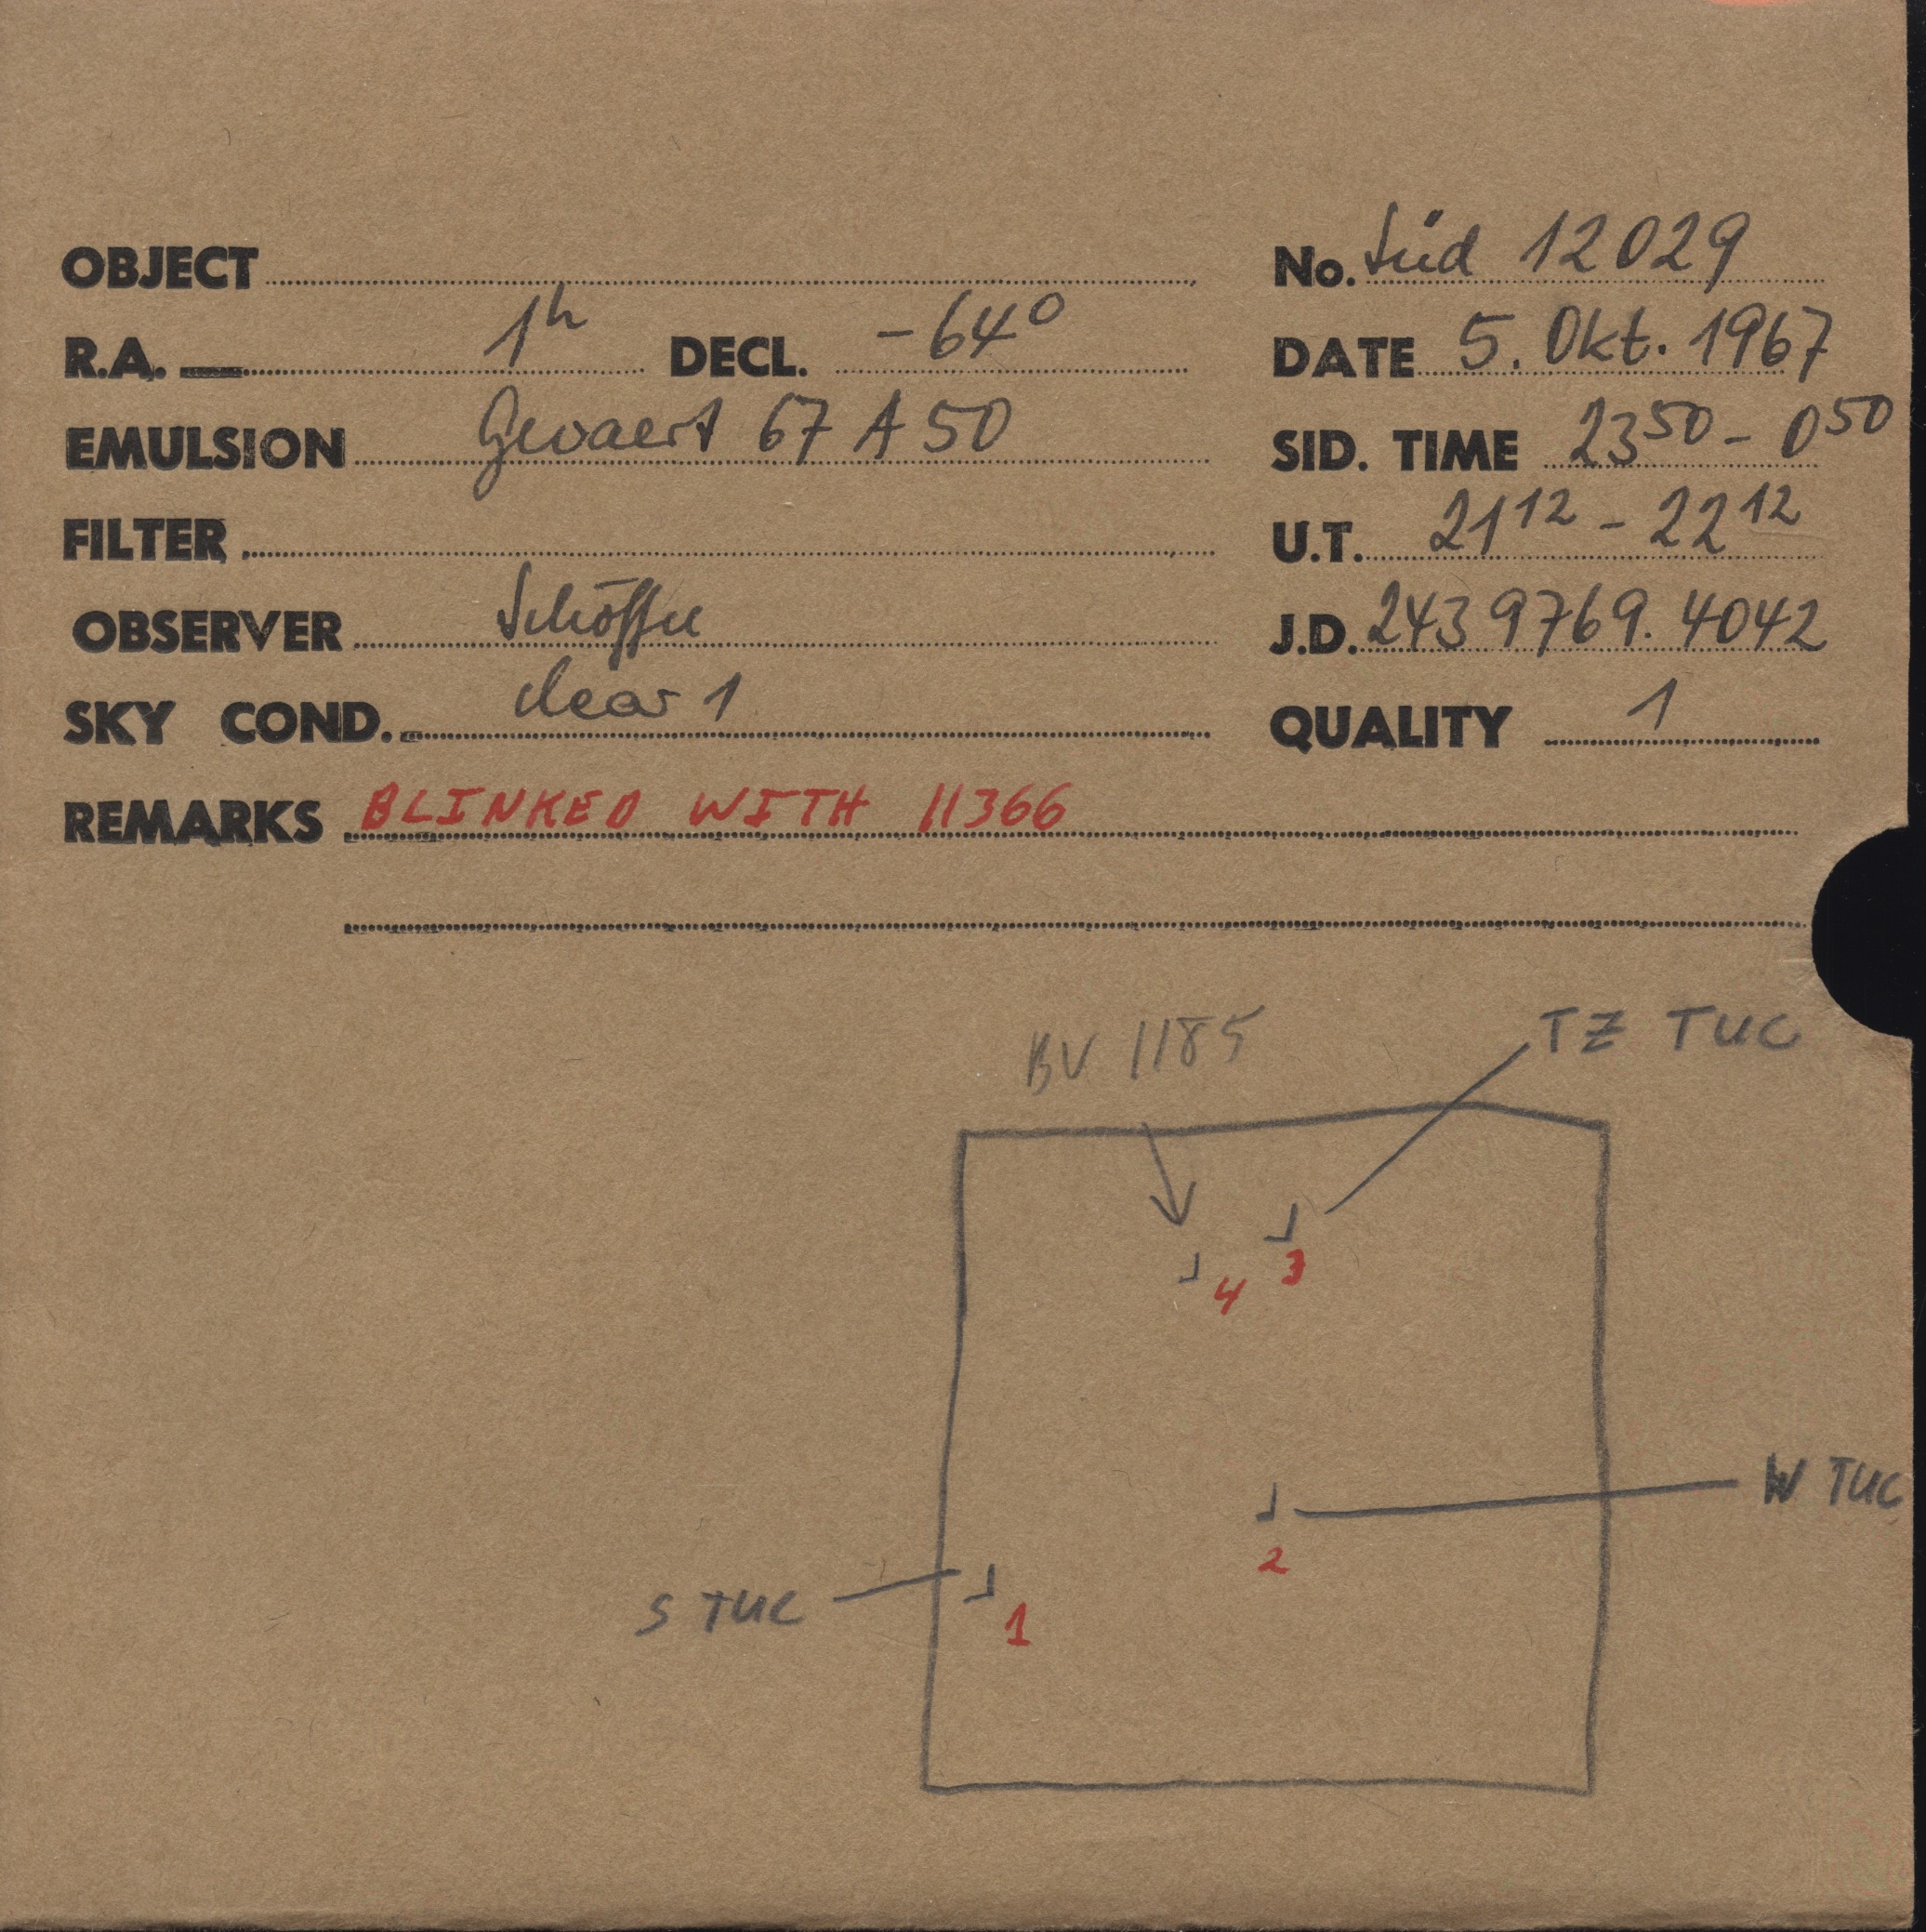 OBJECT
No. Süd 12029
R.A. 1h DECL. -64°
DATE 5. Okt. 1967
EMULSION Gevaert 67 A 50
SID. TIME 23 50 - 0 50
FILTER
U.T. 21 12 - 22 12
OBSERVER Schöffel
J.D. 2439769.4042
SKY COND. clear 1
QUALITY 1
REMARKS BLINKED WITH 11366
BV 1185
TZ TUC
3
4
W TUC
2
S TUC
1